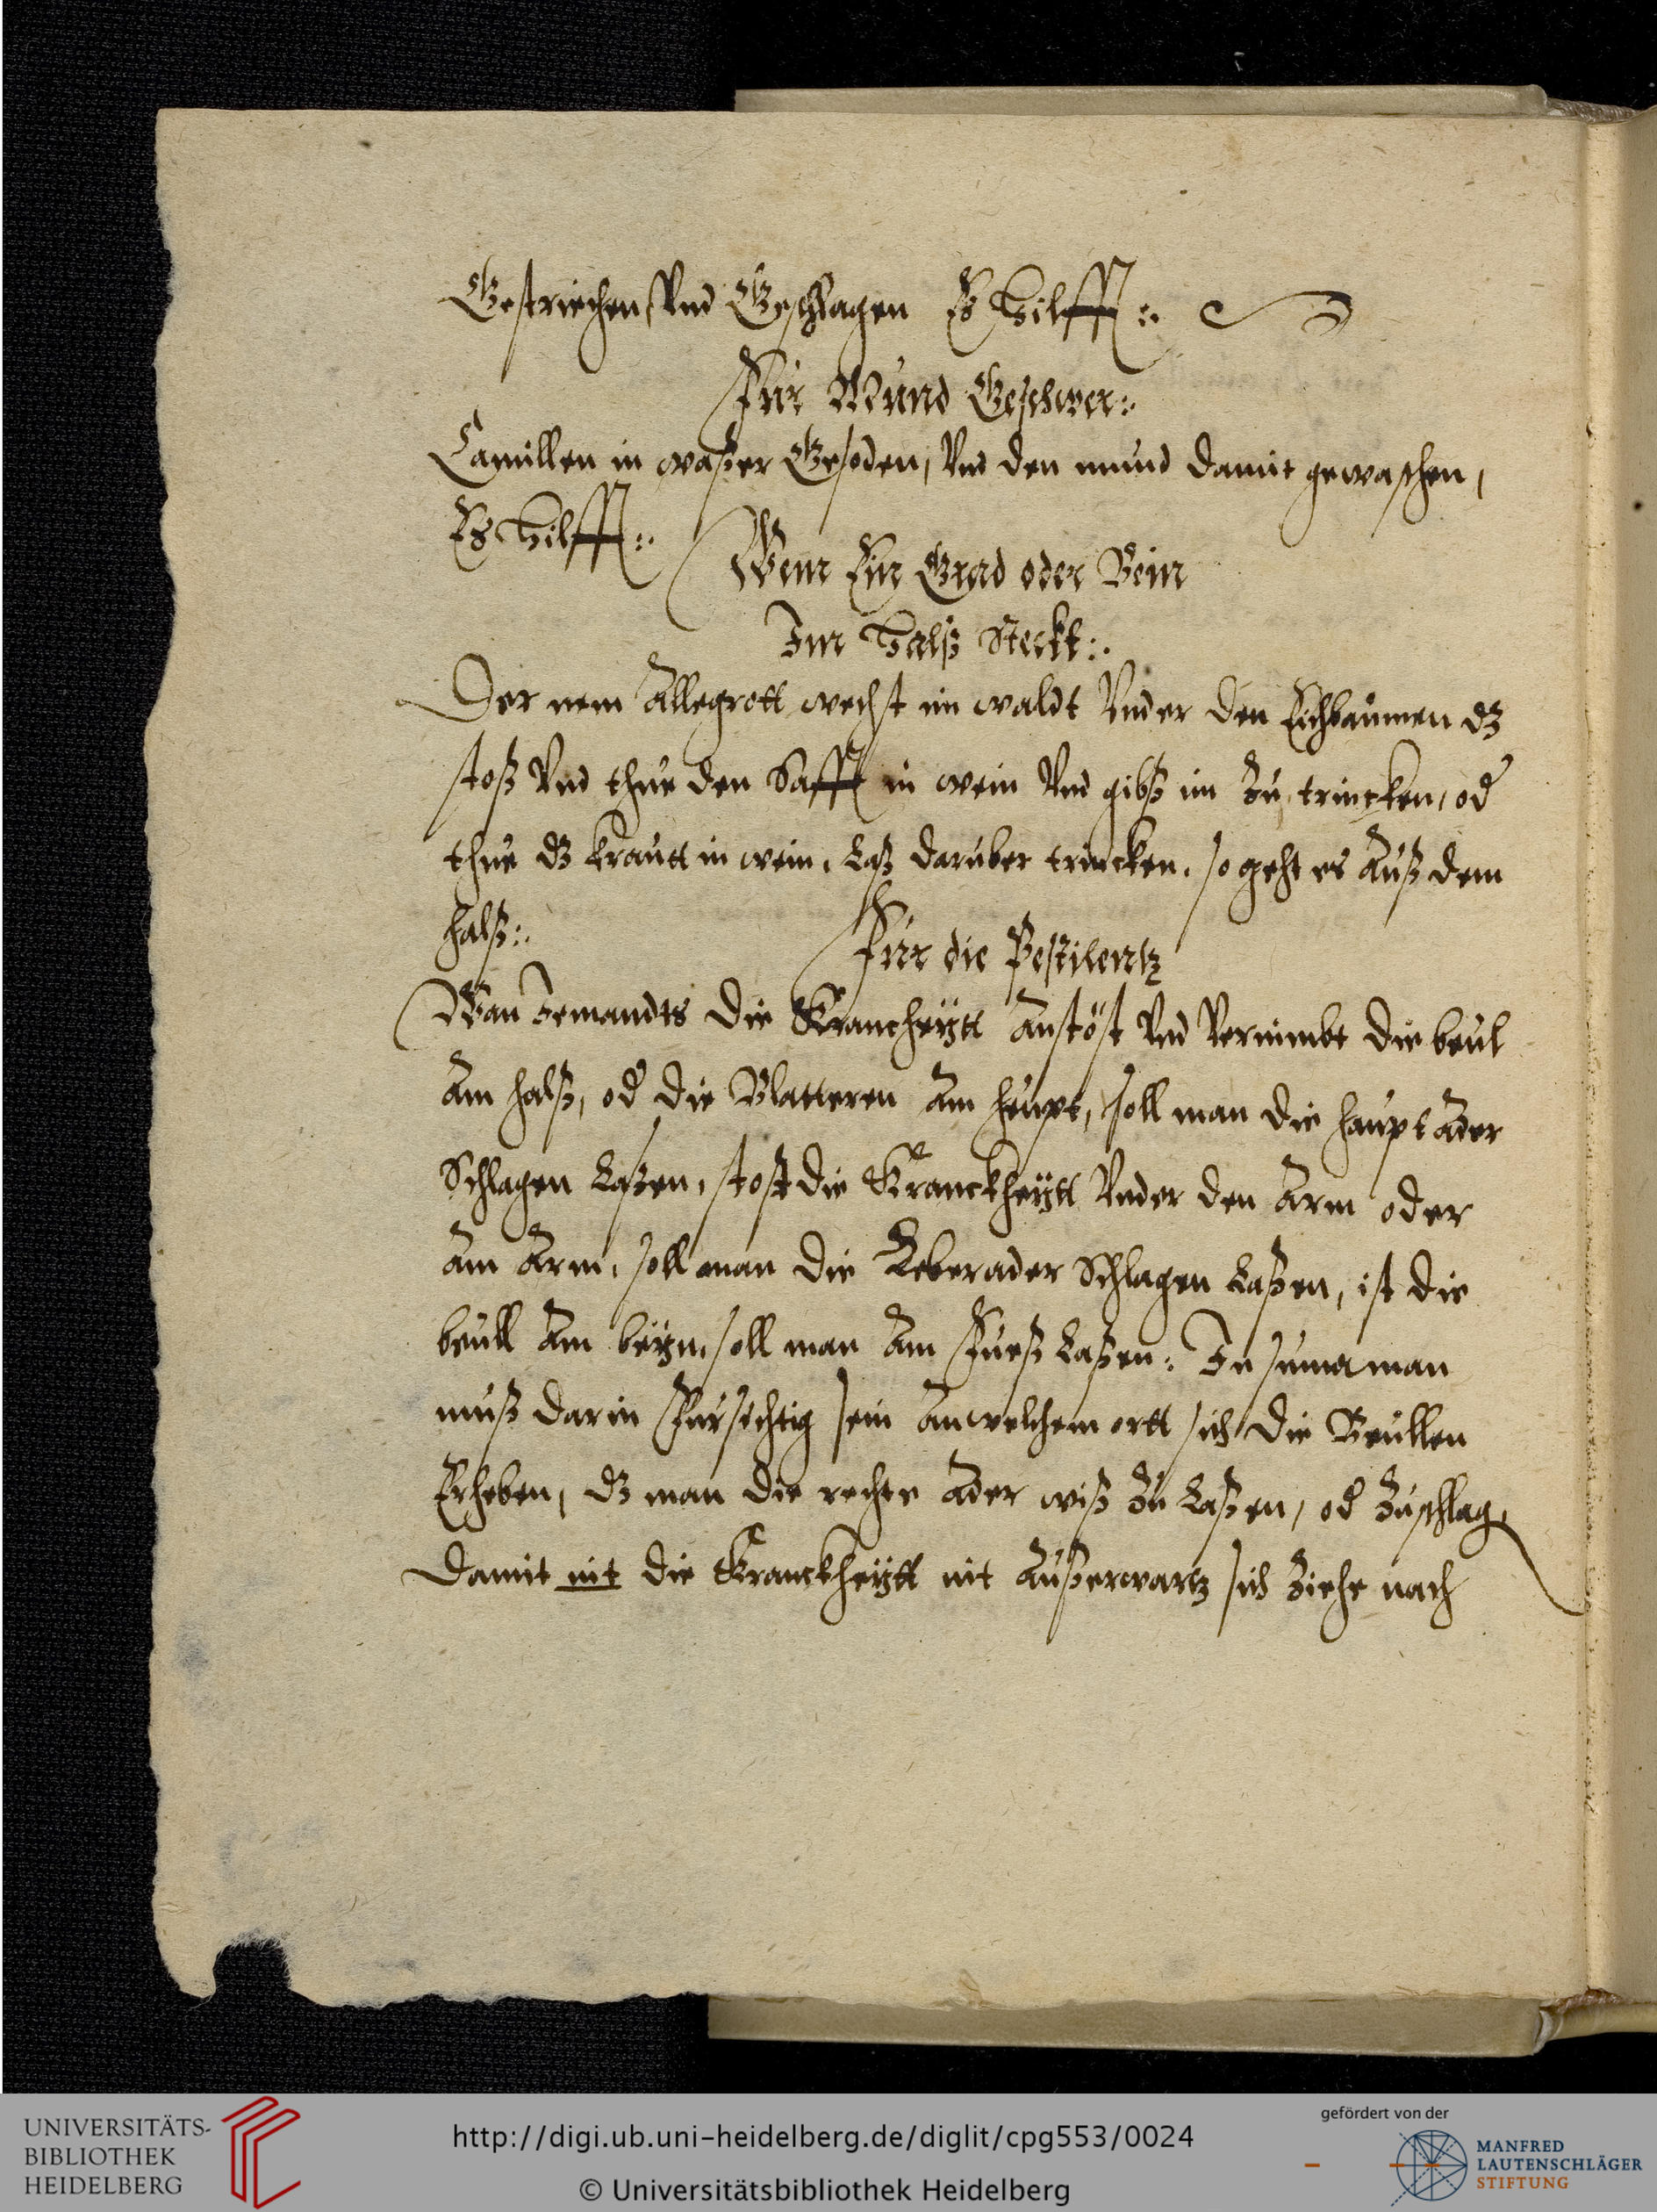 Gestriechen Vnd Geschlagen Es Hilfft :.
Fur Mund Geschwer :.
Camillen in waßer Gesoden, Vnd den mund damit gewaschen,
Es Hilfft :.
Wem Ein Grad oder Bein
Im Halß Steckt :.
Der nem Allegrott wechst im waldt Vnder den Eichbaumen dz
stoß Vnd thue den Safft in wein Vnd gibß im Zu, trincken, od
thue dz krautt in wein, Laß daruber trincken, so geht es Auß dem
halß :.
Fur die Pestilentz
Wan Jemandts die Krancheytt Anstöst Vnd Vernimbt die beul
Am halß, od die Blatteren Am heupt, soll man die haupt ader
Schlagen Laßen, stost die Kranckheytt Vnder den Arm oder
Am Arm, soll man die Leberader Schlagen Laßen, ist die
beull Am beyn, soll man Am Fueß Laßen :. In suma man
muß darin Fursichtig sein An welchem ortt sich die Beullen
Erheben, dz man die rechte ader wiß Zu Laßen, od Zuschlag,
damit nit die Kranckheytt nit Außerwartz sich Ziehe nach
UNIVERSITÄTS-
BIBLIOTHEK
HEIDELBERG
http://digi.ub.uni-heidelberg.de/diglit/cpg553/0024
© Universitätsbibliothek Heidelberg
gefördert von der
MANFRED
LAUTENSCHLÄGER
STIFTUNG